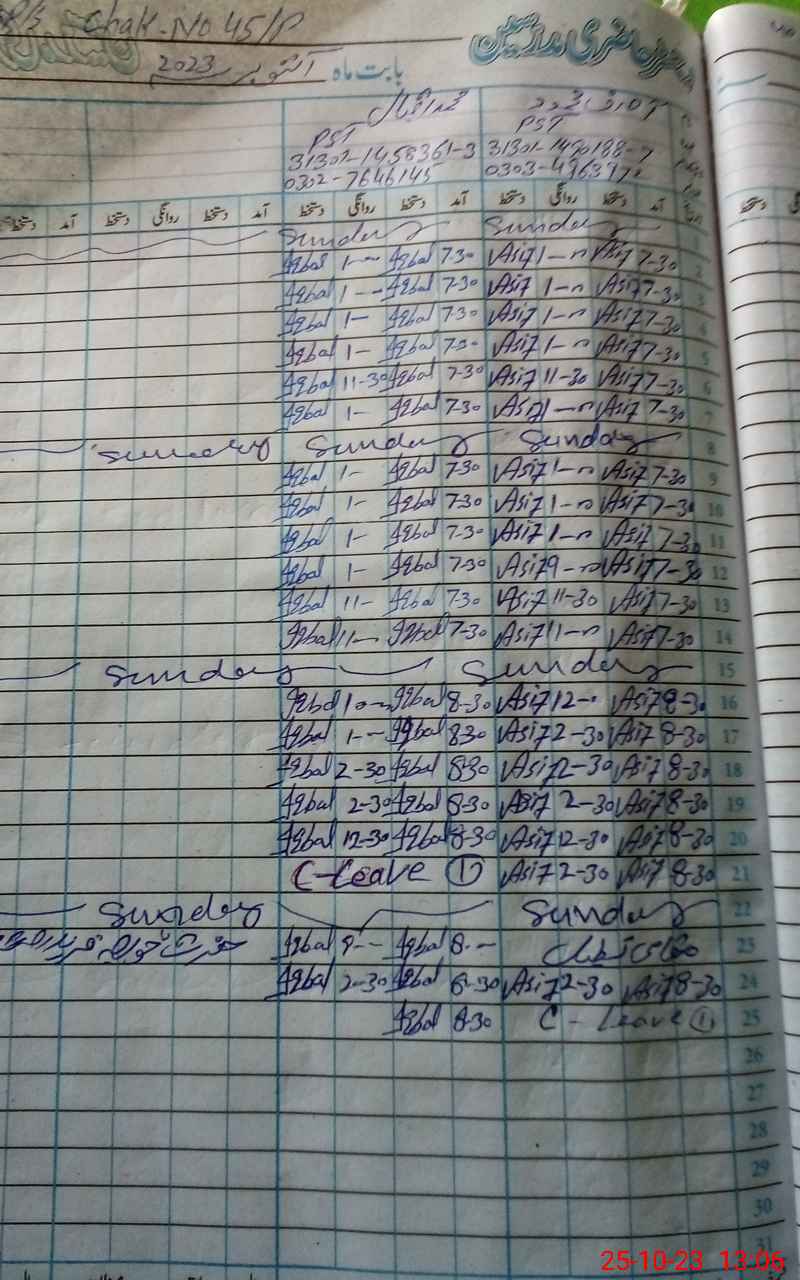 Chak-No 45/P
بابت ماہ اکتوبر 2023
PST PST
31302-1458361-3
0302-7646145
آمد روانگی دستخط آمد روانگی دستخط
Sunday Sunday 1
Iqbal 1-- Iqbal 7-30 Asif 1-- Asif 7-30 2
Iqbal 1-- Iqbal 7-30 Asif 1-- Asif 7-30 3
Iqbal 1- Iqbal 7-30 Asif 1-- Asif 7-30 4
Iqbal 1- Iqbal 7-30 Asif 1-- Asif 7-30 5
Iqbal 11-30 Iqbal 7-30 Asif 11-30 Asif 7-30 6
Iqbal 1- Iqbal 7-30 Asif 1-- Asif 7-30 7
Sunday Sunday Sunday 8
Iqbal 1- Iqbal 7-30 Asif 1-- Asif 7-30 9
Iqbal 1- Iqbal 7-30 Asif 1-- Asif 7-30 10
Iqbal 1- Iqbal 7-30 Asif 1-- Asif 7-30 11
Iqbal 1- Iqbal 7-30 Asif 9-- Asif 7-30 12
Iqbal 11- Iqbal 7-30 Asif 11-30 Asif 7-30 13
Iqbal 11-- Iqbal 7-30 Asif 11-- Asif 7-30 14
Sunday Sunday 15
Iqbal Iqbal 8-30 Asif 12-- Asif 8-30 16
Iqbal 1-- Iqbal 8-30 Asif 2-30 Asif 8-30 17
Iqbal 2-30 Iqbal 8-30 Asif 2-30 Asif 8-30 18
Iqbal 2-30 Iqbal 8-30 Asif 2-30 Asif 8-30 19
Iqbal 12-30 Iqbal 8-30 Asif 12-30 Asif 8-30 20
C-Leave ① Asif 2-30 Asif 8-30 21
Sunday Sunday 22
Iqbal 9-- Iqbal 8-- مقامی تعطیل 23
Iqbal 2-30 Iqbal 8-30 Asif 2-30 Asif 8-30 24
Iqbal 8-30 C-Leave ① 25
26
27
28
29
30
31
25-10-23 13:06